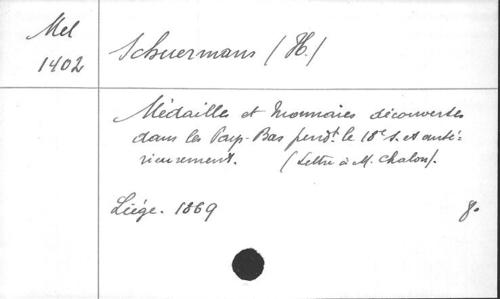 Mel
1402
Schuermans (H.)
Médailles et monnaies découvertes
dans les Pays-Bas pendt. le 18e s. et anté-
rieurement. (Lettre à M. Chalon).
Liége. 1869
8o